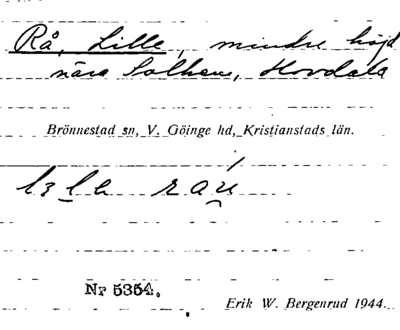 Rå, Lille, mindre höjd
nära Solhem, Hovdala
Brönnestad sn, V. Göinge hd, Kristianstads län.
Nr 5354.
Erik W. Bergenrud 1944.